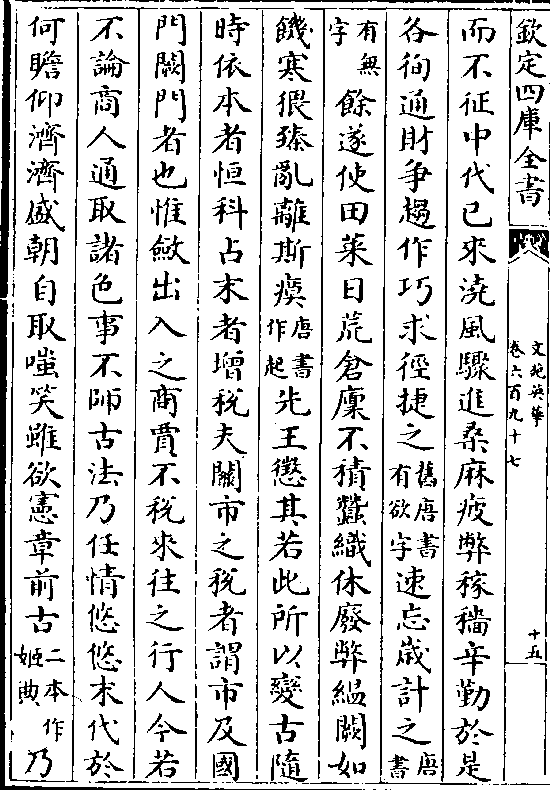 欽定四庫全書
文苑英華
卷六百九十七
十五
而不征中代已來澆風驟進桑麻疲弊稼穡辛勤於是
各徇通財争趨作巧求徑捷之舊唐書有欲字速忘歲計之唐書
有無字餘遂使田萊日荒倉廩不積蠶織休廢弊緼闕如
饑寒猥臻亂離斯瘼唐書作起先王懲其若此所以變古隨
時依本者恒科占末者增税夫關市之税者謂市及國
門關門者也惟斂出入之商賈不税來往之行人今若
不論商人通取諸色事不師古法乃任情悠悠末代於
何瞻仰濟濟盛朝自取嗤笑雖欲憲章前古二本作姬典乃